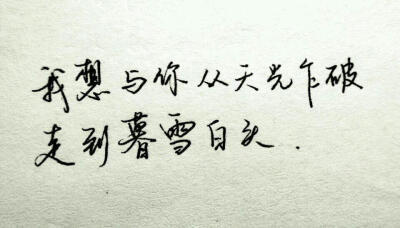 我想与你从天光乍破
走到暮雪白头.